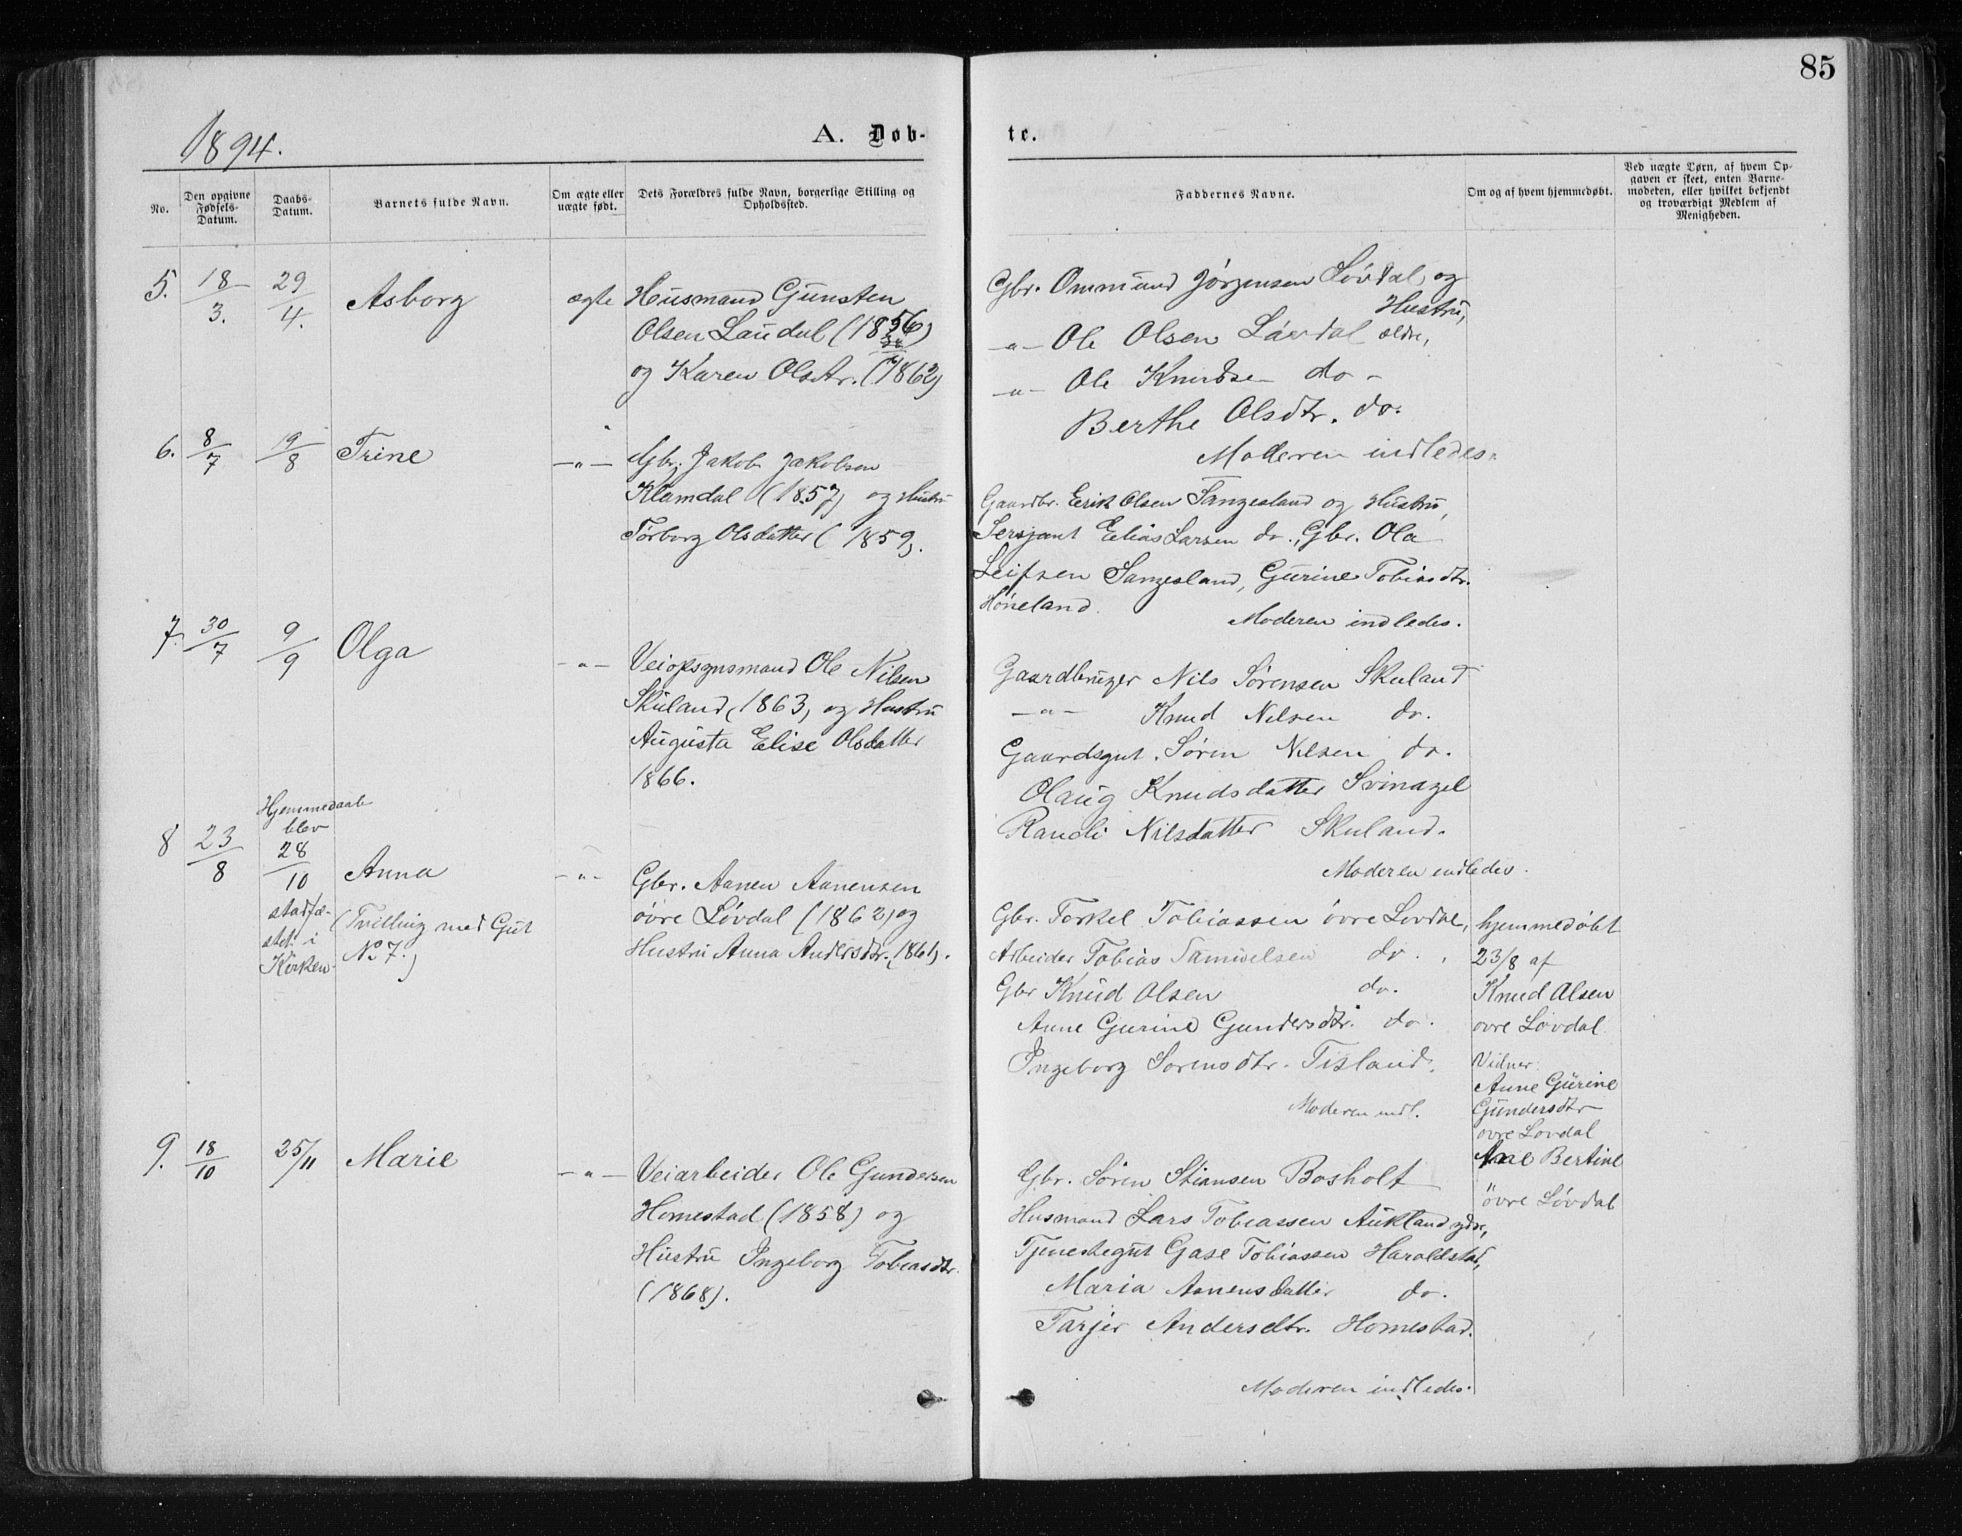 85
1894.
A. Døb-
te.
No.
Den opgivne Fødsels-Datum.
Daabs-Datum.
Barnets fulde Navn.
Om ægte eller uægte født.
Dets Forældres fulde Navn, borgerlige Stilling og Opholdssted.
Faddernes Navne.
Om og af hvem hjemmedøbt.
Ved uægte Børn, af hvem Op-
gaven er skeet, enten Barne-
moderen, eller hvilket bekjendt
og troværdigt Medlem af
Menigheden.
5.
18/3.
29/4.
Asborg
ægte
Husmand Gunsten
Olsen Laudal (1856)
og Karen Olsdtr. (1862)
Gbr. Ommund Jørgensen Løvdal og
Hustru,
-"- Ole Olsen Løvdal ældre,
-"- Ole Knudsen do -
Berthe Olsdtr. do.
Moderen indledes.
6.
8/7
19/8
Trine
-"-
Gbr. Jakob Jakobsen
Klamdal (1857) og Hustru
Torborg Olsdatter (1859).
Gaardbr. Erik Olsen Sangesland og Hustru,
Sersjant Elias Larsen do., Gbr. Ola
Leifsen Sangesland, Gurine Tobiasdtr.
Høneland.
Moderen indledes.
7.
30/7
9/9
Olga
-"-
Veiopsynsmand Ole Nilsen
Skuland (1863) og Hustru
Augusta Elise Olsdatter
1866.
Gaardbruger Nils Sørensen Skuland
-"- Knud Nilsen do.
Gaardsgut. Søren Nilsen do.
Olaug Knudsdatter Svinagel
Randi Nilsdatter Skuland.
Moderen indledes.
8
23/8
Hjemmedaab
blev
28/10
stadfæ-
stet i
Kirken
Anna
(Tvilling med Gut
No 7.)
-"-
Gbr. Aanen Aanensen
øvre Løvdal (1862) og
Hustru Anna Andersdtr. (1861).
Gbr. Torkel Tobiassen øvre Lovdal,
Arbeider Tobias Samuelsen do.,
Gbr Knud Olsen do.
Anne Gurine Gundersdtr. do.
Ingeborg Sorensdtr. Tisland.
Moderen indl.
hjemmedøbt
23/8 af
Knud Olsen
ovre Lovdal
Vidner:
Anne Gurine
Gundersdtr
ovre Lovdal
Ane Bertine
øvre Løvdal
9.
18/10
25/11
Marie
-"-
Veiarbeider Ole Gundersen
Homestad (1858) og
Hustru Ingeborg Tobiasdtr.
(1868).
Gbr. Søren Stiansen Bosholt
Husmand Lars Tobiassen Aukland ydre,
Tjenestegut Gase Tobiassen Haraldstad,
Maria Aanensdatter do.
Tarjer Andersdtr. Homestad.
Moderen indledes.